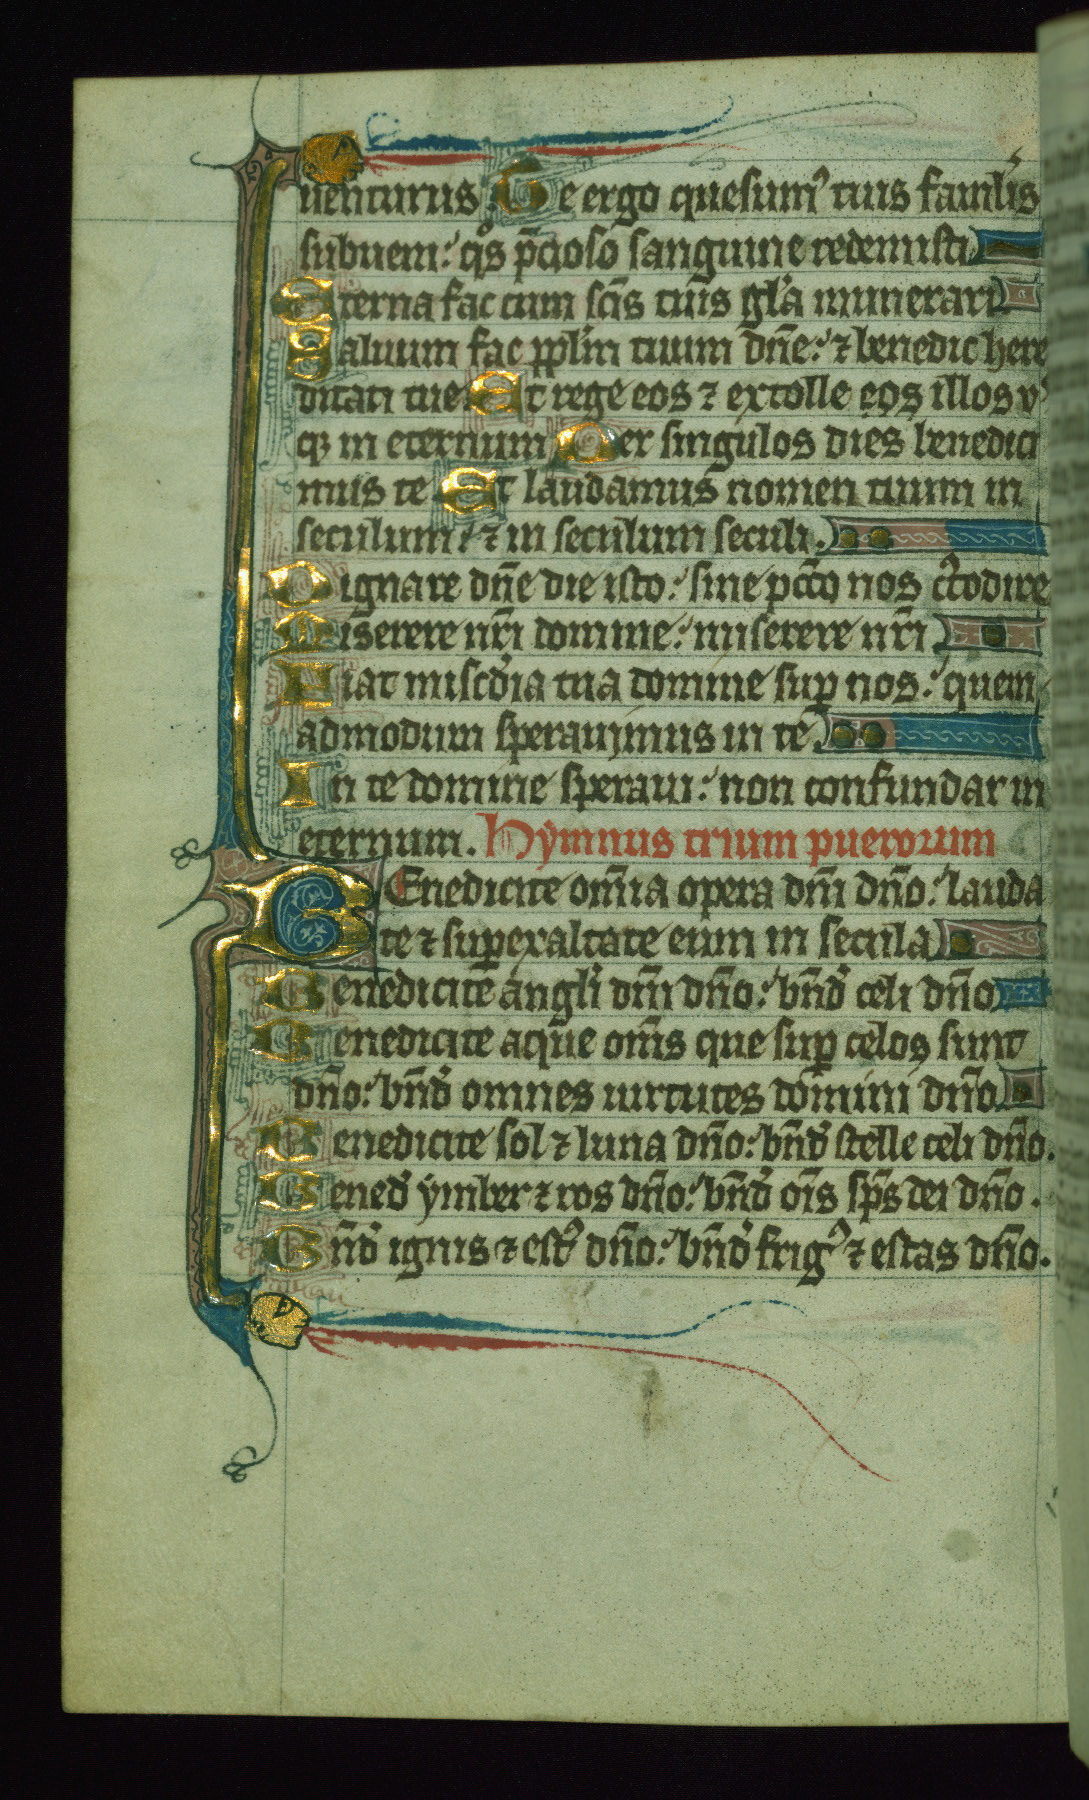 uenturus Te ergo quesum᷒ tuis famĺis
subueni: q̊s p̄cioso sanguine redemisti
Eterna fac cum sc̄is tuis gl̄a munerari
Saluum fac ppl̄m tuum dn̄e: ⁊ benedic here
ditati tue Et rege eos ⁊ extolle eos illos vs
qꝫ in eternum Per singulos dies benedici
mus te Et laudamus nomen tuum in
seculum: ⁊ in seculum seculi.
Dignare dn̄e die isto: sine pc̄c̄o nos c᷒todire
Miserere nr̄i domine: miserere nr̄i
Fiat misc̄dia tua domine suꝑ nos: quem
admodum sperauimus in te
In te domine speraui: non confundar in
eternum. Hẏmnus trium puerorum
BEnedicite om̄ia opera dn̄i dn̄o: lauda
te ⁊ superexaltate eum in secula
Benedicite angl̄i dn̄i dn̄o: bn̄d̓ celi dn̄o
Benedicite aque om̄s que suꝑ celos sunt
dn̄o: bn̄d̓ omnes uirtutes domini dn̄o
Benedicite sol ⁊ luna dn̄o: bn̄d̓ stelle celi dn̄o.
Bened̓ ẏmber ⁊ ros dn̄o: bn̄d̓ om̄s sp̄s dei dn̄o.
Bn̄d̓ ignis ⁊ est᷒ dn̄o: bn̄d̓ frig᷒ ⁊ estas dn̄o.